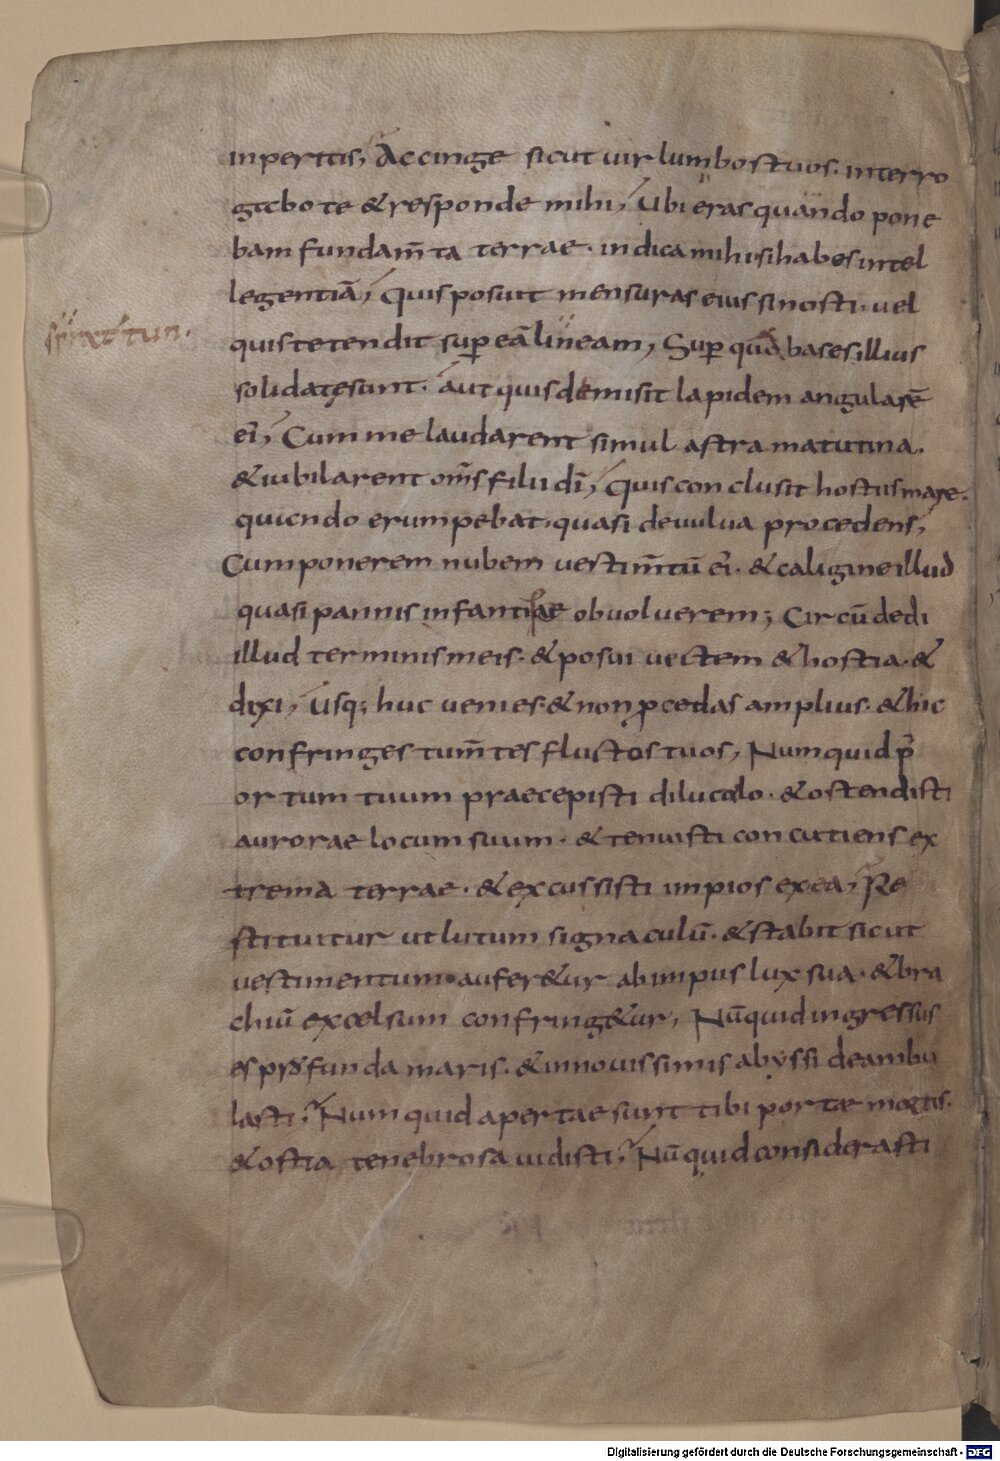 inperitis, Accinge sicut uir lumbos tuos. interro
gabo te & responde mihi, Ubi eras quando pone
bam fundam̄ta terrae. indica mihi si habes intel
legentiā, Quis posuit mensuras eius si nosti. uel
quis tetendit sup eā lineam, Sup quā bases illius
solidate sunt. aut quis demisit lapidem angularē
ei᷒, Cum me laudarent simul astra matutina.
& iubilarent om̄s filii dī, Quis conclusit hostiis mare.
quando erumpebat. quasi de uulua procedens,
Cum ponerem nubem uestim̄tū ei᷒. & caligine illud
quasi pannis infantiae obuoluerem; Circūdedi
illud terminis meis. & posui uectem & hostia. &
dixi, Usq; huc uenies. & non ꝓcedas amplius. & hic
confringes tum̄tes fluctos tuos, Numquid p̄
ortum tuum praecepisti diluculo. & ostendisti
aurorae locum suum. & tenuisti concutiens ex
trema terrae. & excussisti impios ex ea, Re
stituitur ut lutum signaculū. & stabit sicut
uestimentum. aufer&ur ab impiis lux sua. & bra
chiū excelsum confring&ur, Nūquid ingressus
es profunda maris. & in nouissimis abyssi deambu
lasti, Numquid apertae sunt tibi portae mortis.
& ostia tenebrosa uidisti, Nūquid considerasti
Digitalisierung gefördert durch die Deutsche Forschungsgemeinschaft - DFG